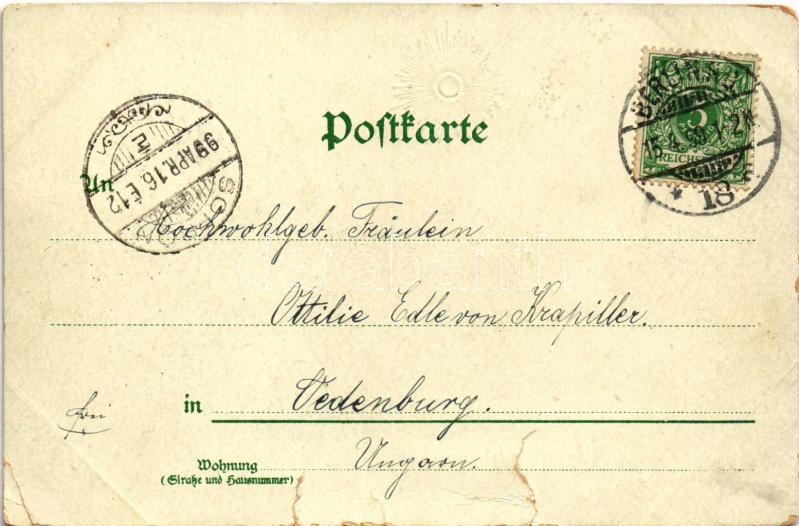 Postkarte
BERLIN
15.4.99. 1-2N.
* 18
5
REICHSPOST
SOPRON
99 APR. 16. É. 12
An
Hochwohlgeb. Fräulein
Ottilie Edle von Krapiller.
frei
in Oedenburg.
Wohnung
(Straße und Hausnummer)
Ungarn.
darabanth